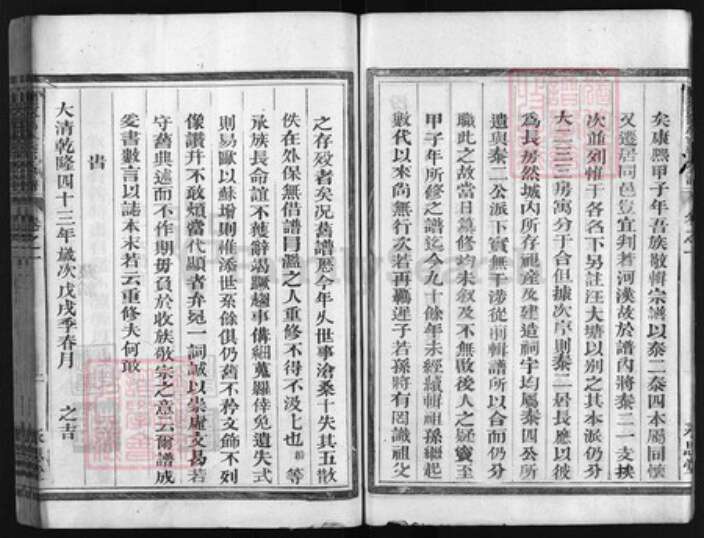 矣康熙甲子年吾族敬輯宗譜以泰二泰四本屬同懷
又遷居同邑豈宜判若河漢故於譜內將泰二一支挨
次並列惟于各名下另註汪大塘以別之其本派仍分
大二三三房寓分于合但據次序則泰二居長應以彼
為長房然城內所存祀產及建造祠宇均屬泰四公所
遺與泰二公派下實無干涉從前輯譜所以合而仍分
職此之故當日纂修均未敘及不無啟後人之疑竇至
甲子年所修之譜迄今九十餘年未經續輯祖孫繼起
數代以來尚無行次若再勸遲子若孫將有罔識祖父
之存歿者矣況舊譜歷今年久世事滄桑十失其五散
佚在外保無借譜冒濫之人重修不得不汲七也 等
承族長命誼不獲辭竭蹶趨事偹細蒐羅倖免遺失式
則易歐以蘇增則惟添世系餘俱仍舊不矜文飾不列
像讚并不敢煩當代顯者弁冕一詞誠以崇尚文易若
守舊典述而不作期毋負於收族敬宗之意云爾譜成
爰書數言以誌本末若云重修夫何敢
旹
大清乾隆四十三年歲次戊戌季春月 之吉